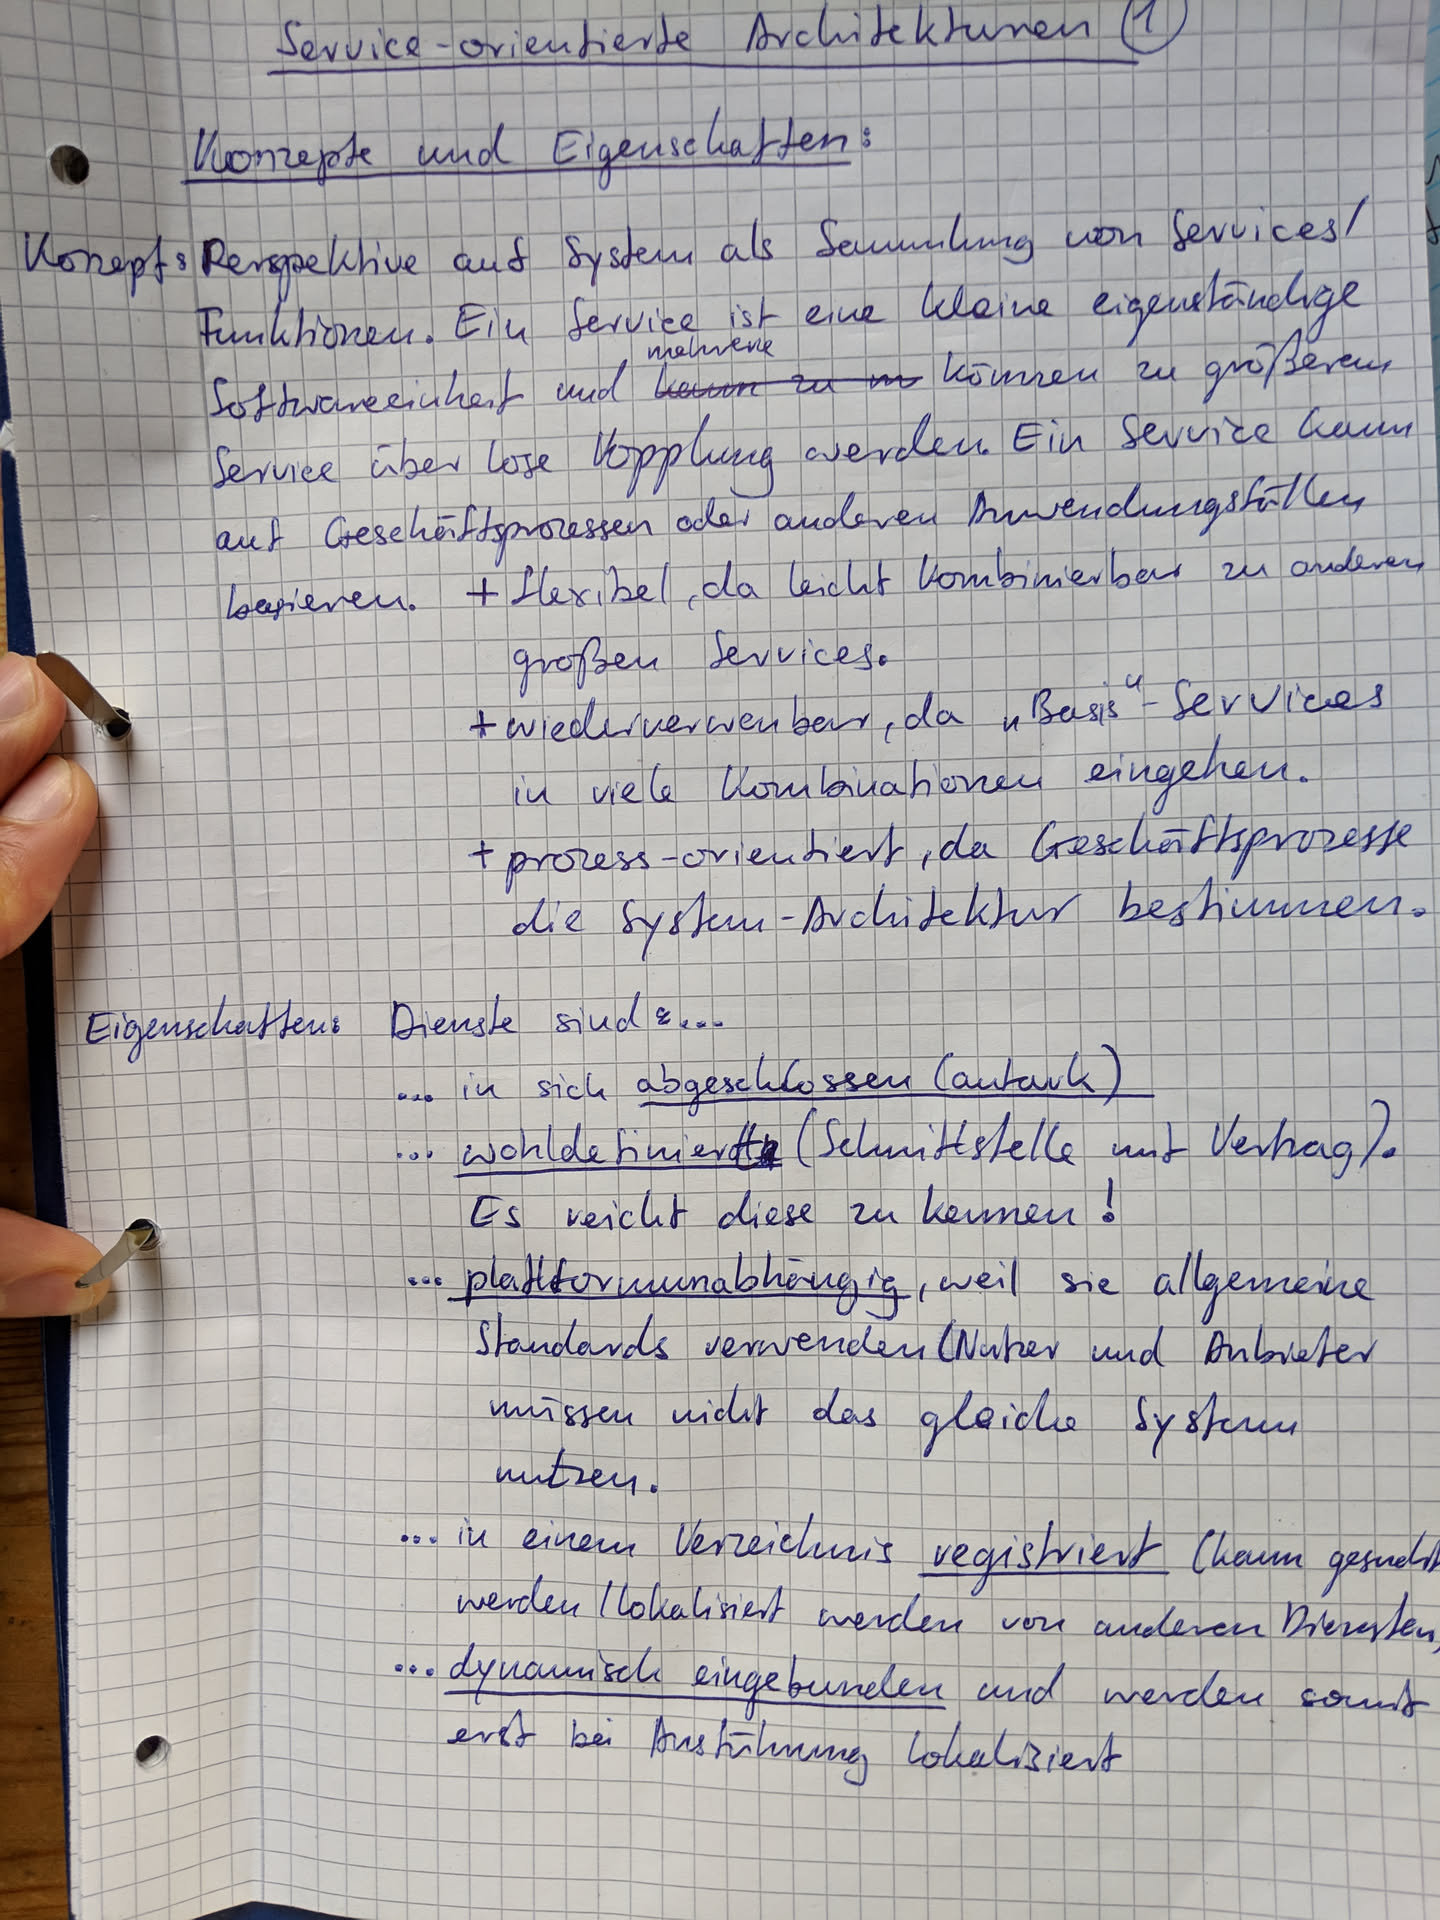 Service-orientierte Architekturen ①
Konzepte und Eigenschaften:
Konzept: Perspektive auf System als Sammlung von Services/
Funktionen. Ein Service ist eine kleine eigenständige
mehrere
Softwareeinheit und kann zu m können zu größerem
Service über lose Kopplung werden. Ein Service kann
auf Geschäftsprozessen oder anderen Anwendungsfällen
basieren. + flexibel, da leicht kombinierbar zu anderen
großen Services.
+ wiederverwenbar, da „Basis“-Services
in viele Kombinationen eingehen.
+ prozess-orientiert, da Geschäftsprozesse
die System-Architektur bestimmen.
Eigenschaften: Dienste sind: ...
... in sich abgeschlossen (autark)
... wohldefiniert (Schnittstelle mit Vertrag).
Es reicht diese zu kennen!
... plattformunabhängig, weil sie allgemeine
Standards verwenden (Nutzer und Anbieter
müssen nicht das gleiche System
nutzen.
... in einem Verzeichnis registriert (kann gesucht
werden/lokalisiert werden von anderen Diensten)
... dynamisch eingebunden und werden somit
erst bei Ausführung lokalisiert